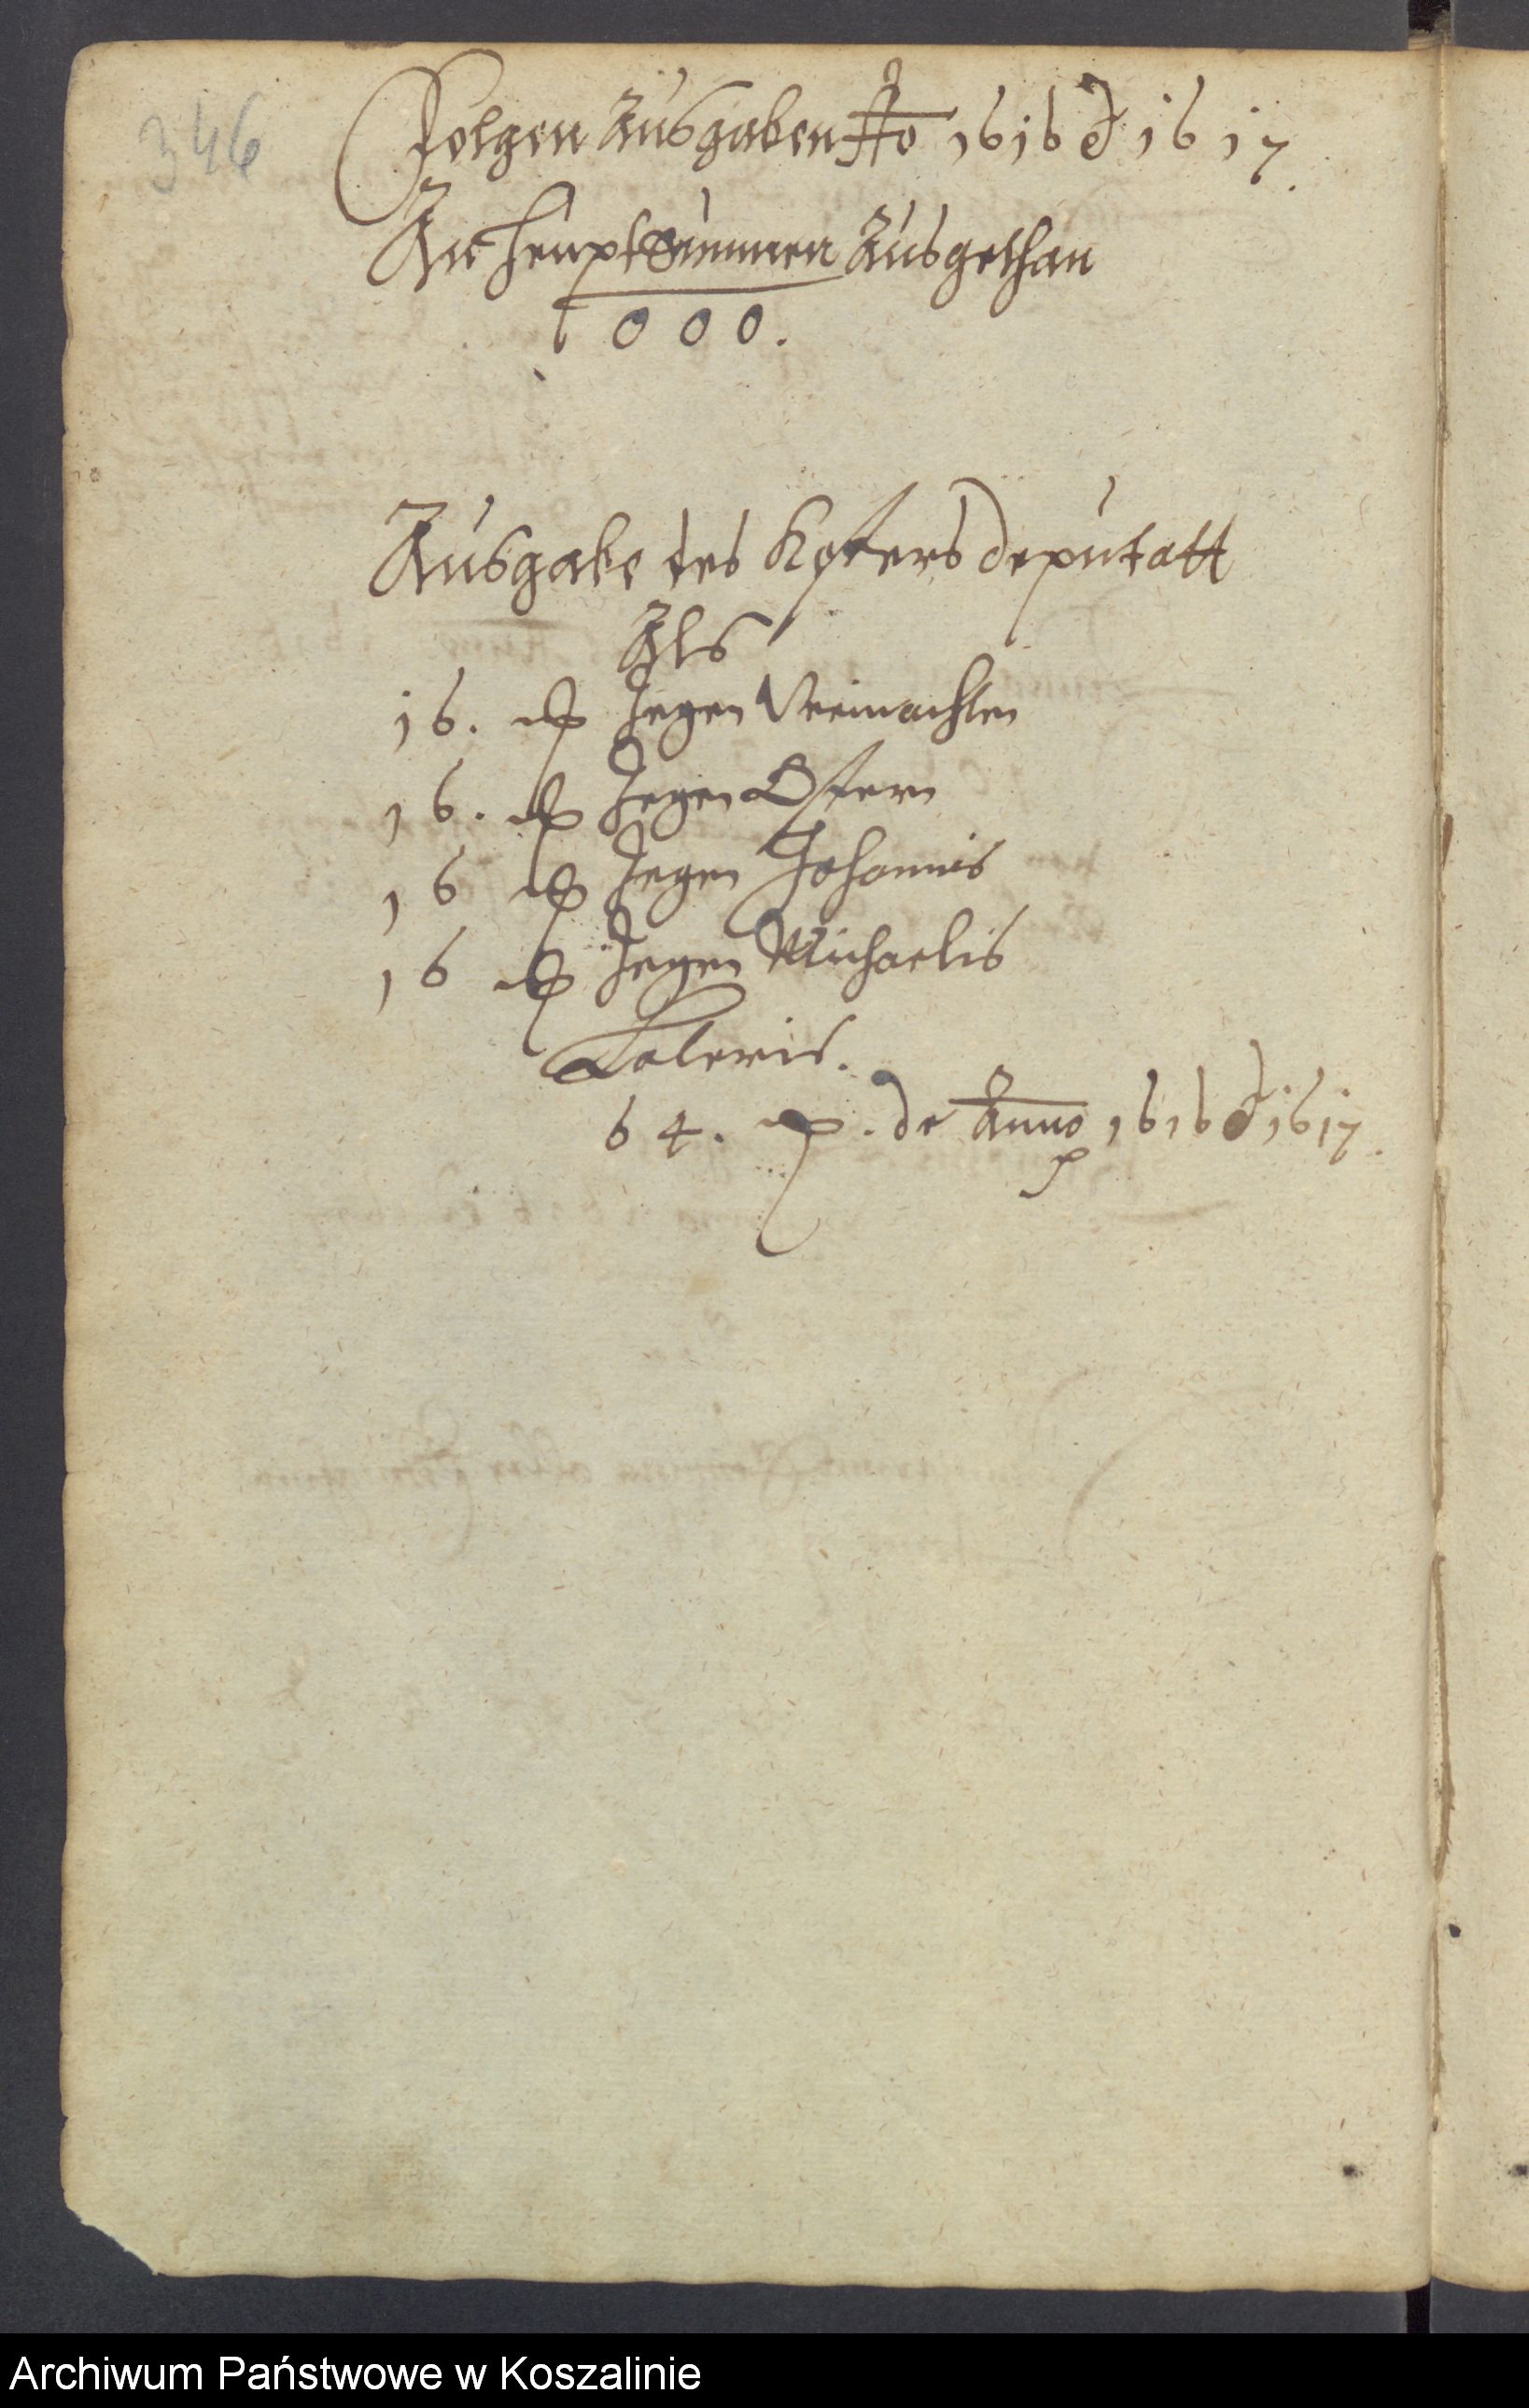 346
Folgen Ausgaben Ao 1616 et 1617.
An heuptSummen Ausgethan
1000.
Ausgabe des Kosters deputatt
Als
16. Jegen Weinachten
16. Jegen Ostern
16 Jegen Johannis
16 Jegen Michaelis
Lateris.
64. de Anno 1616 et 1617.
Archiwum Państwowe w Koszalinie